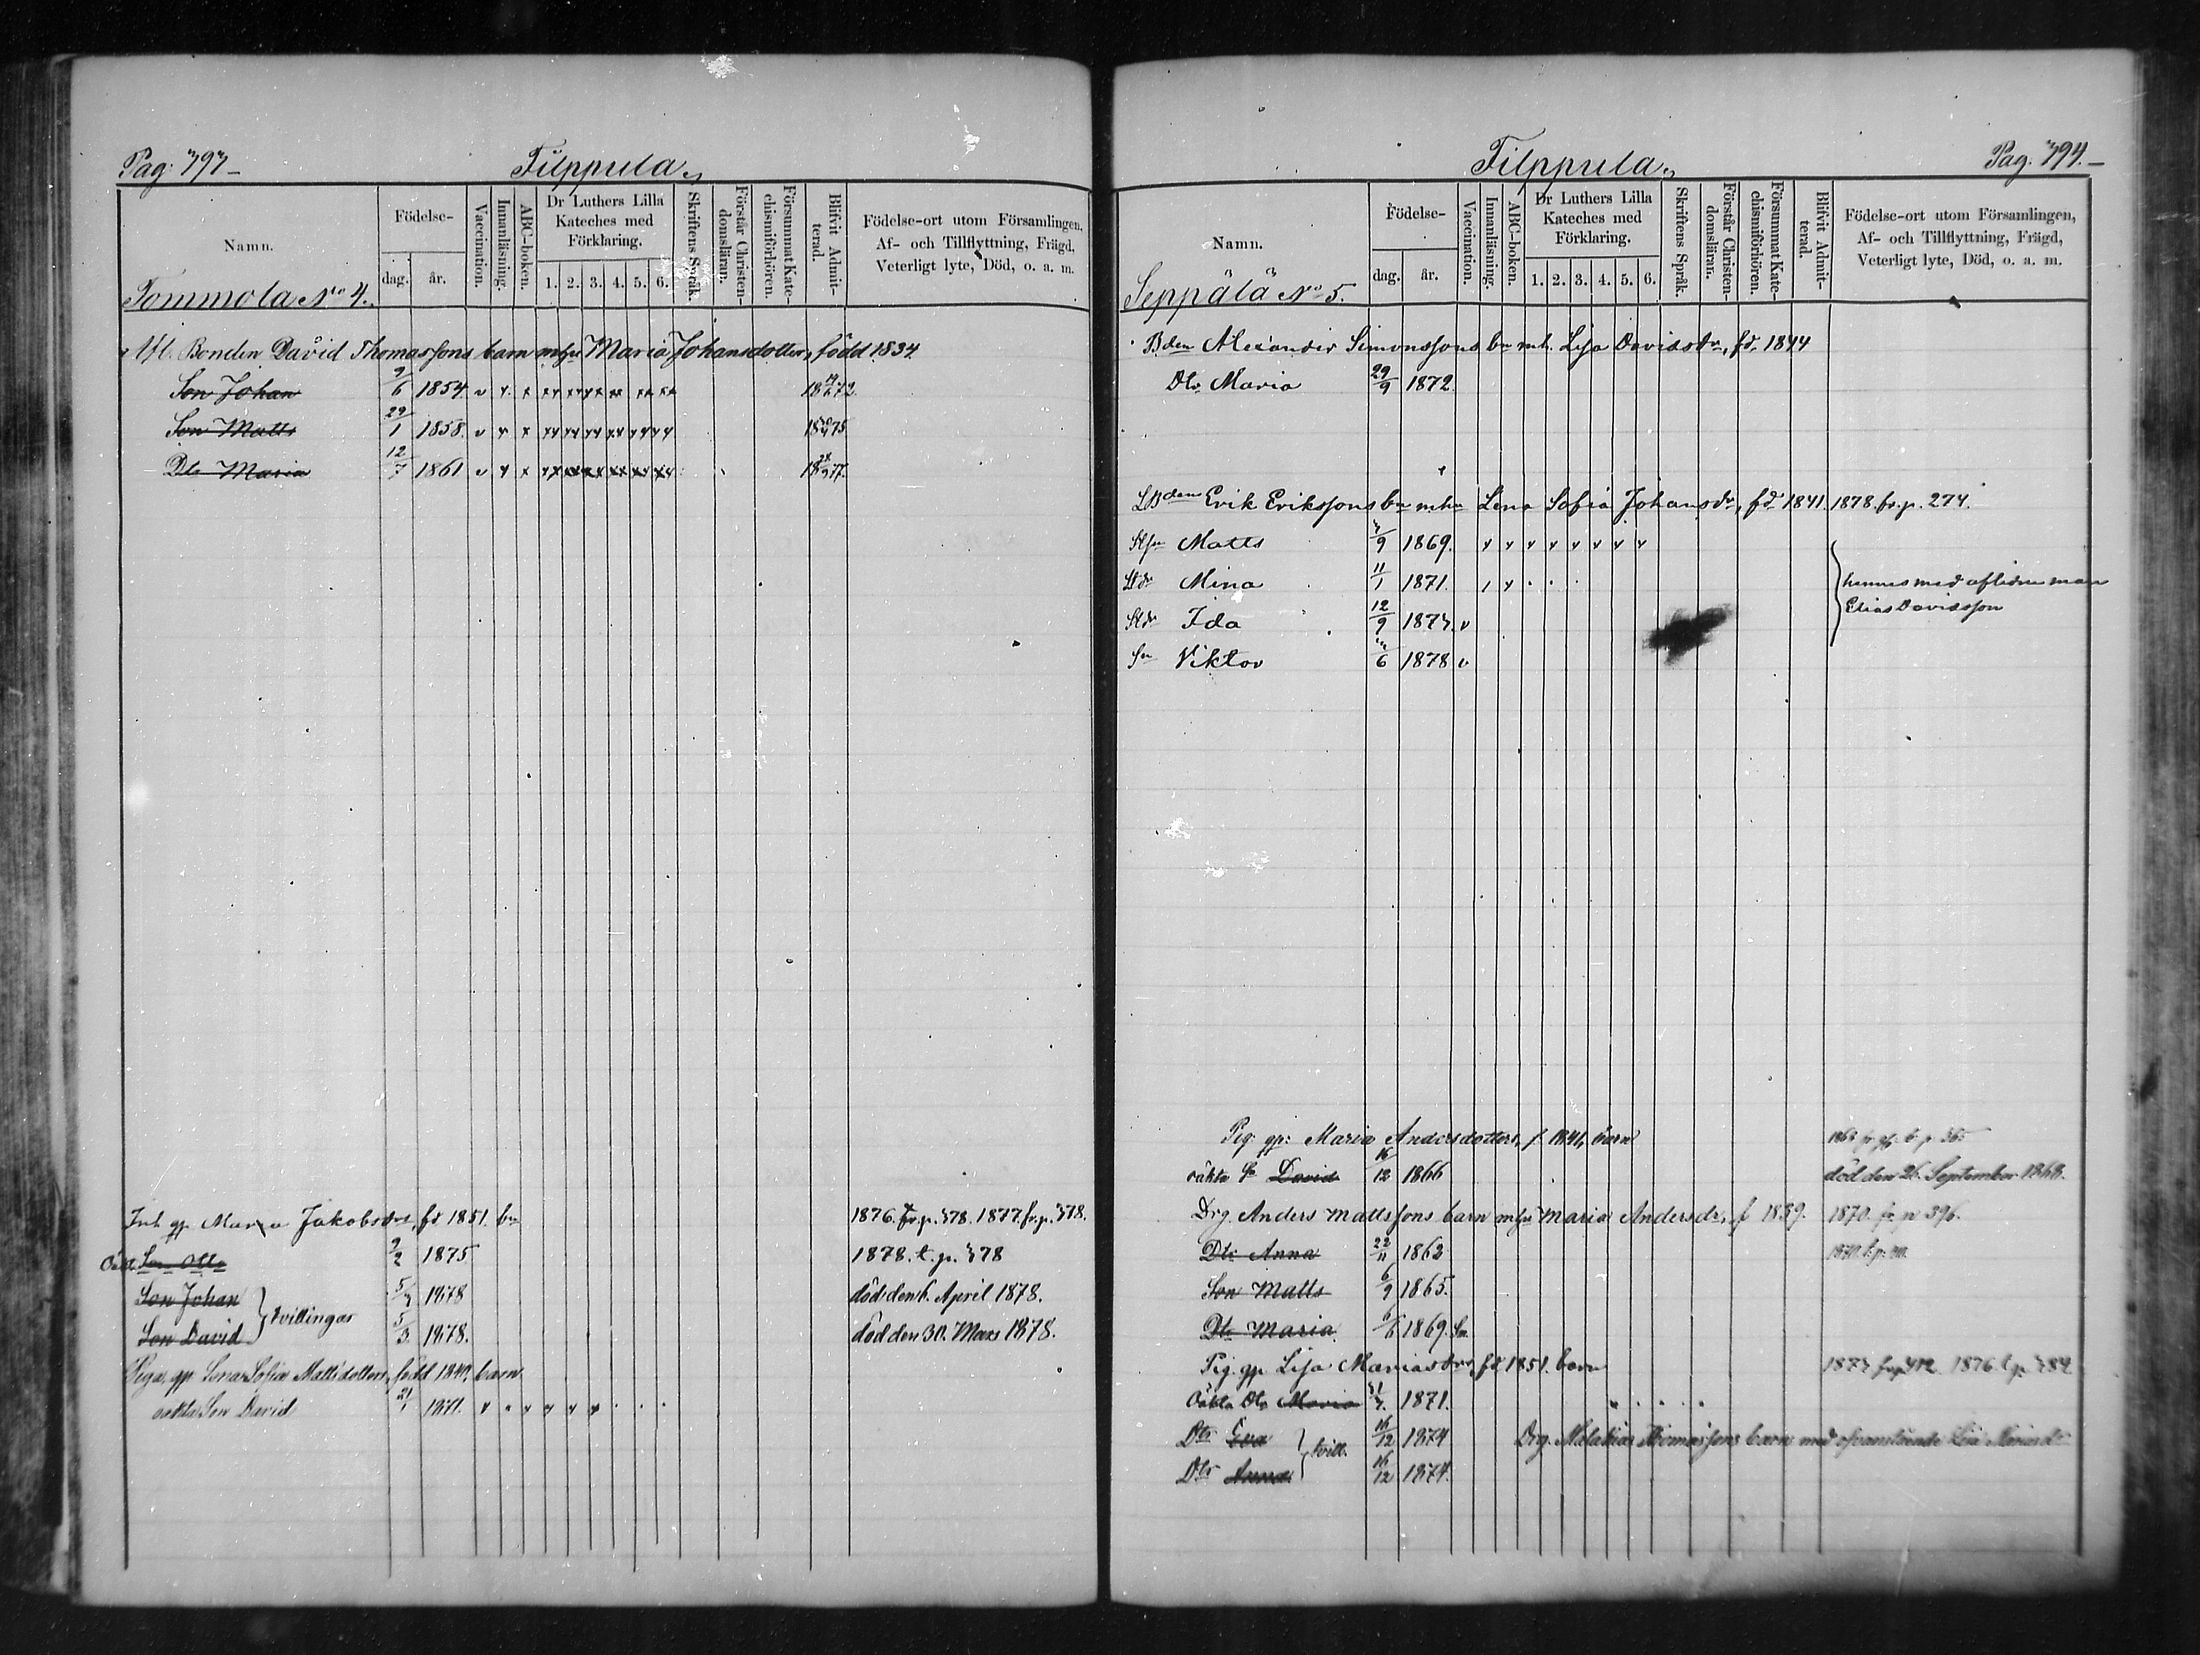 Pag: 393
Filppula
Namn.
Födelse-
dag.
år.
Vaccination.
Innanläsning.
ABC-boken.
Dr Luthers Lilla Kateches med Förklaring.
1. 2. 3. 4. 5. 6.
Skriftens Språk.
Förstår Christendomsläran.
Försummat Katechismiförhören.
Blifvit Admitterad.
Födelse-ort utom Församlingen,
Af- och Tillflyttning, Frägd,
Veterligt lyte, Död, o. a. m.
Tommola No 4.
Afl. Bonden David Thomassons barn m hu Maria Johansdotter, född 1834.
Son Johan 2/6 1854. v x x xx xx xx xx xx xx 1872.
Son Matts 29/1 1858. v x x xx xx xx xx xx xx 1875
Dtr Maria 12/7 1861 v x x xx xx xx xx xx xx 1877.
Inh. gp. Maria Jakobsdrs, fd 1851. bn 1876. fr. p. 378. 1877. fr. p. 378.
Oäkt. Son Otto 2/2 1875 1878. t. p. 378
Son Johan 5/3 1878 död den 6. April 1878.
tvillingar
Son David 5/3 1878. död den 30. Mars 1878.
Piga gp. Lena Sofia Mattsdotters, född 1840, barn
oäkta Son David 21/1 1871.
Filppula
Pag. 394.
Namn.
Födelse-
dag.
år.
Vaccination.
Innanläsning.
ABC-boken.
Dr Luthers Lilla Kateches med Förklaring.
1. 2. 3. 4. 5. 6.
Skriftens Språk.
Förstår Christendomsläran.
Försummat Katechismiförhören.
Blifvit Admitterad.
Födelse-ort utom Församlingen,
Af- och Tillflyttning, Frägd,
Veterligt lyte, Död, o. a. m.
Seppälä No 5.
Bden Alexander Simonssons bn m h. Lisa Davidsdr, fd. 1844
Dtr Maria 29/9 1872.
LBden Erik Erikssons bn m hu Lena Sofia Johansdr, fd 1841. 1878. fr. p. 274.
Stsn Matts 3/9 1869.
Stdr Mina 11/1 1871. hennes med aflidne man
Stdr Ida 12/9 1873. v Elias Davidsson
Sn Viktor /6 1878 v
Pig. gp: Maria Andersdotters, f 1841, barn
oäkta Sn David 16/12 1866 död den 26. September 1868.
Drg. Anders Mattssons barn m hu Maria Andersdr, f 1839. 1870. fr. p. 396.
Dtr Anna 22/11 1862
Son Matts 6/9 1865.
Dtr Maria /6 1869.
Pig. gp. Lisa Mariasdrs, fd 1851. barn 1873. 1876. t. p. 384
Oäkta Dtr Maria 31/7 1871.
Dtr Eva 16/12 1874 Drg. Malakias Thomassons barn med ofvanstående Lisa Mariasdr
tvill.
Dtr Anna 16/12 1874.